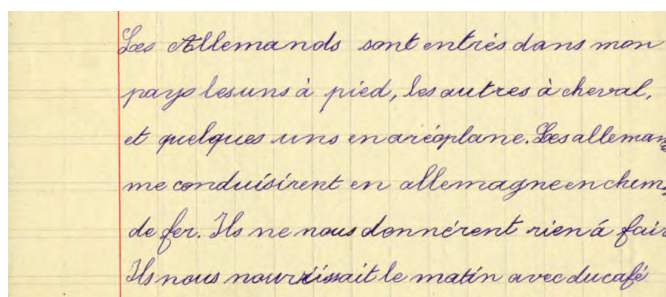 Les Allemands sont entrés dans mon
pays les uns à pied, les autres à cheval,
et quelques uns en aréoplane. Les alleman
me conduisirent en allemagne en chem
de fer. Ils ne nous donnérent rien á fair
Ils nous nourrissait le matin avec du café